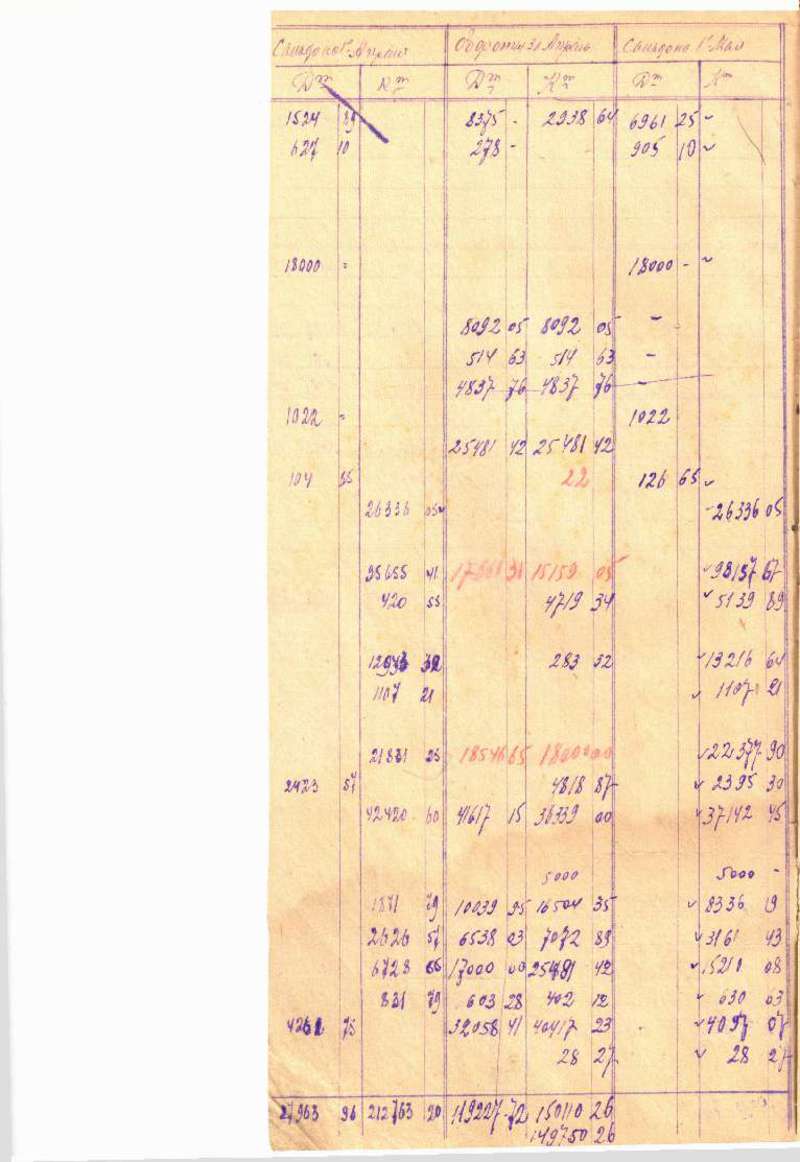 Сальдо на 1 Апреля Обороты за Апрель Сальдо на 1 Мая
Дт Кт Дт Кт Дт Кт
1524 89 8375 - 2938 64 6961 25
627 10 278 - 905 10
18000 = 18000 -
8092 05 8092 05 -
514 63 514 63 -
4837 76 4837 76 -
1022 = 1022
25481 42 25481 42
104 22 126 65
26336 05 26336 05
95655 41 15159 05 98157 67
420 55 4719 34 5139 89
283 32 13216 64
1107 21 1107 21
18546 65 18000 00 22377 90
2423 57 4818 87 2395 30
42420 60 41617 15 36339 00 37142 45
5000 5000 -
1871 79 10039 95 16504 35 8336 19
2626 57 6538 03 7072 89 3161 43
6728 66 17000 00 25481 42 15210 08
831 79 603 28 402 12 630 63
4261 75 32058 41 40417 23 4097 07
28 27 28 27
27963 96 212763 20 119227 72 150110 26
149750 26